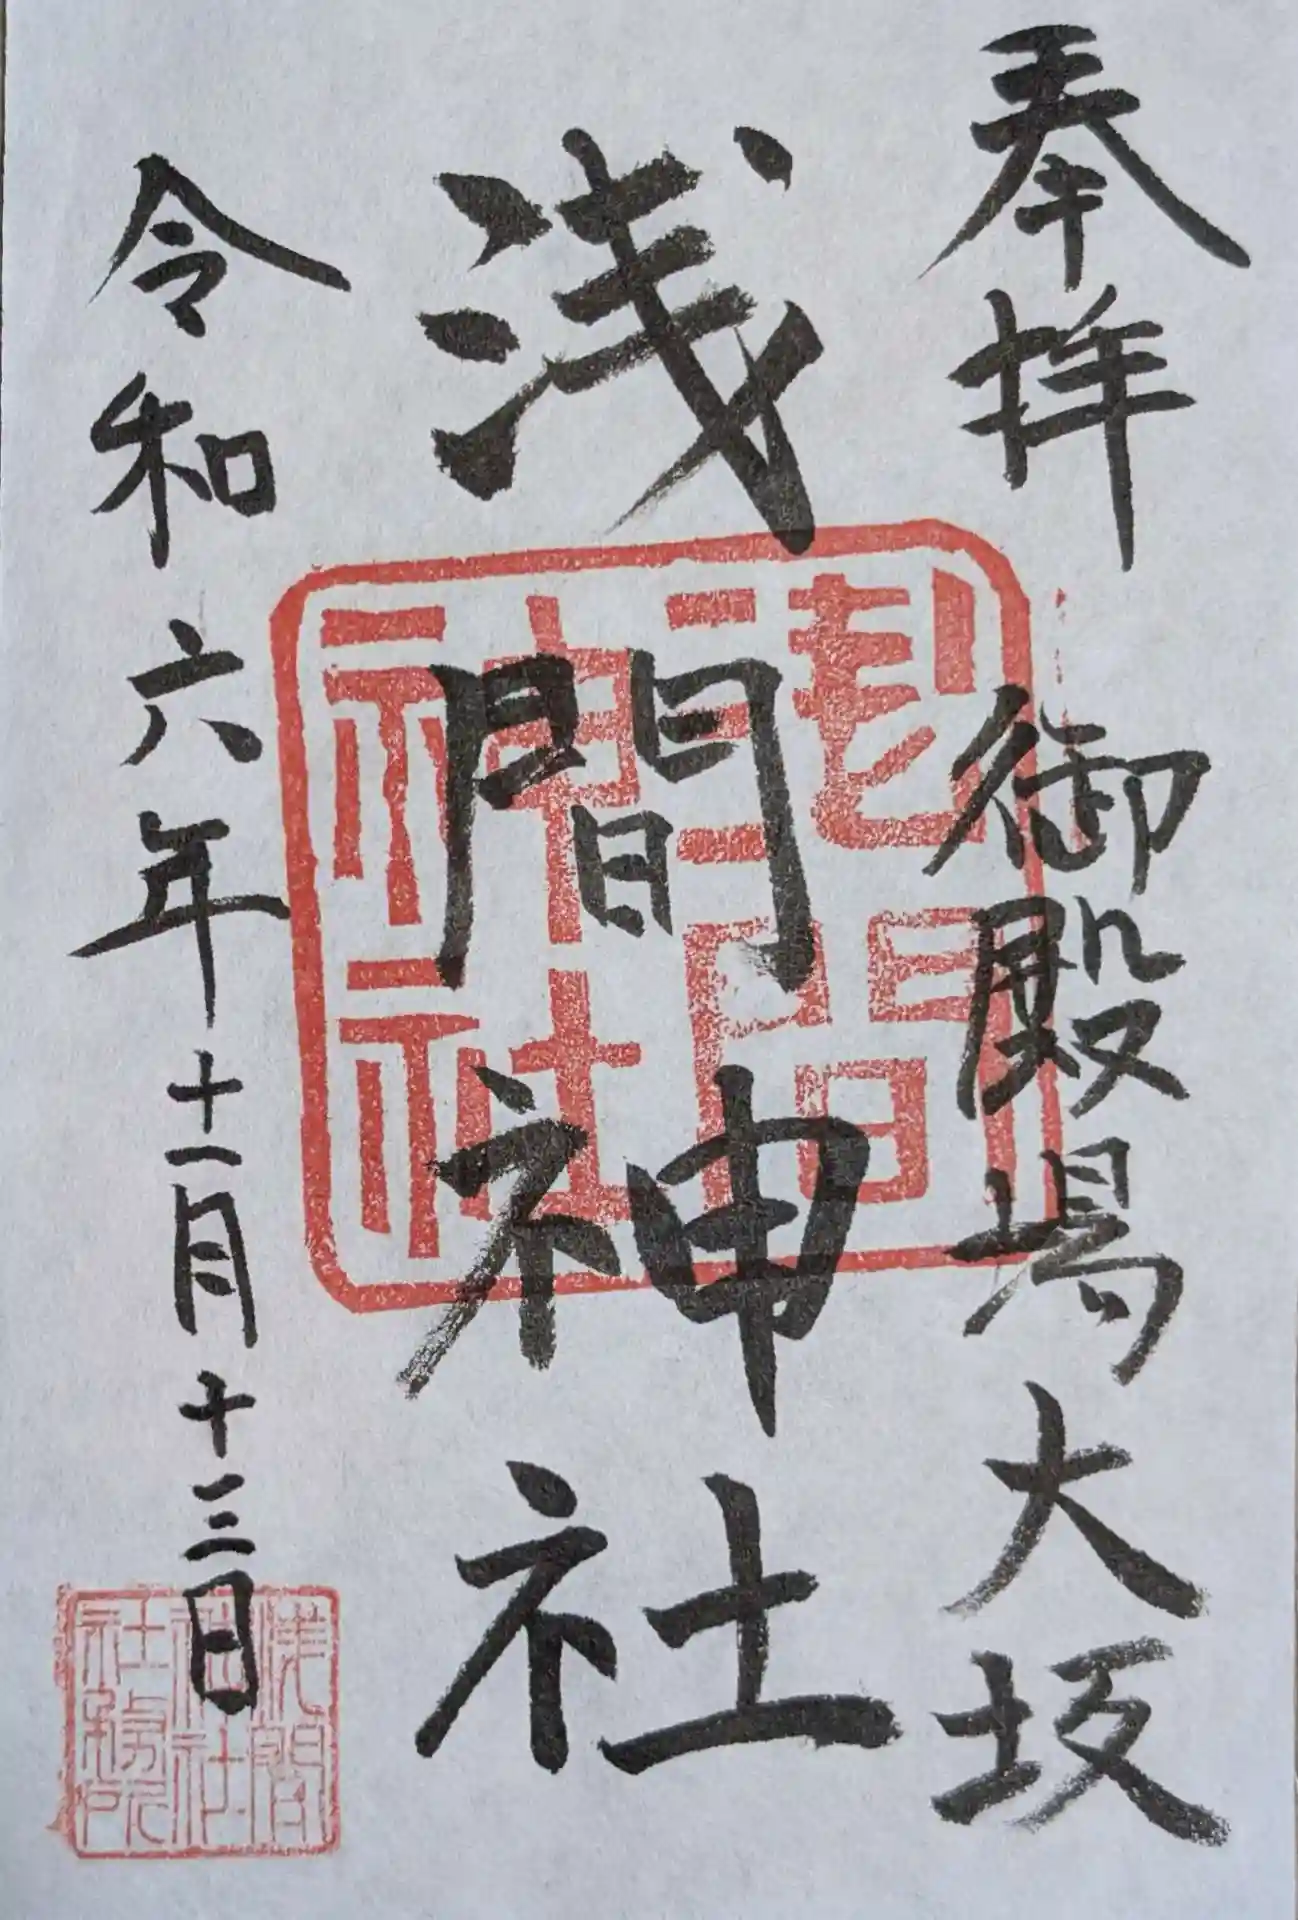 奉拝 御殿場大坂
浅間神社
令和六年十一月十三日
浅間神社
浅間神社社務所